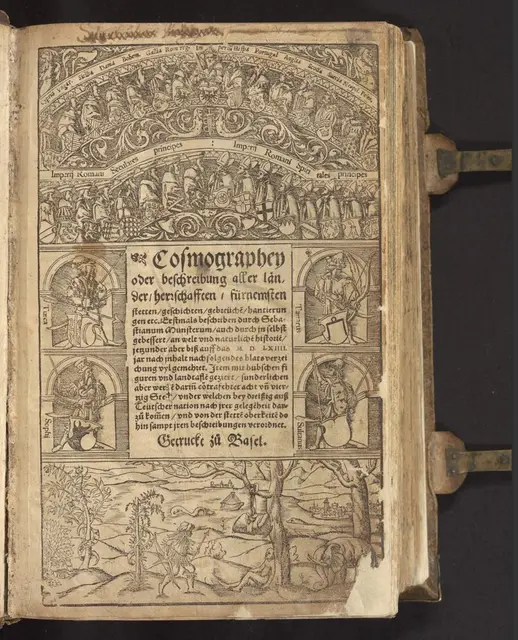 Gallia Rom. Imp.
Imperij Romani Seculares principes : Imperij Romani Spiri tales principes
Cosmographey
oder beschreibung aller län
der / herrschafften / fürnemsten
stetten / geschichten / gebreüchē / hantierun
gen etc. Erstmals beschriben durch Seba-
stianum Munsterum / auch durch in selbst
gebessert / an welt vnd natürlichē historiē /
jetzunder aber biß auff das M. D. LXIIII.
jar nach inhalt nachfolgendes blats verzei
chung vyl gemehret. Item mit hübschen fi
guren vnd landtaflē gezieret / sunderlichen
aber werdē darin̄ cōtrafehtet acht vn̄ vier-
tzig Stett / vnder welchen bey dreißig auß
Teütscher nation nach jrer gelegēheit dar-
zů kom̄en / vnd von der stettē oberkeitē do
hin sampt jren beschreibungen verordnet.
Getruckt zů Basel.
Turca
Tartarus
Sophi
Soldanus